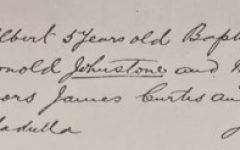 lbert 5 Years old Bap
nold Johnstone and
ors James Curtis an
ladulla